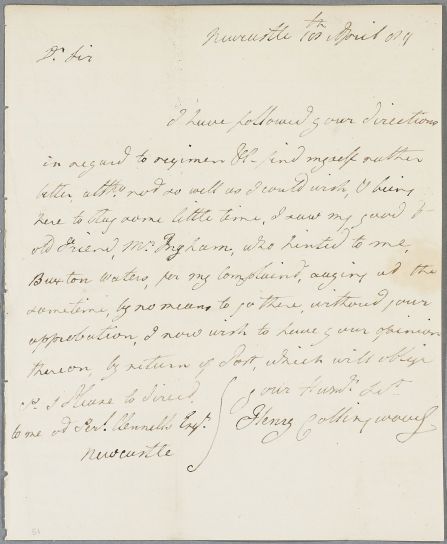 Newcastle 10th April 1819
Dr Sir
I have followed your directions
in regard to regimen &c. find myself rather
better, altho not so well as I could wish, I being
here to stay some little time, I saw my good &
old Friend, Mr. Ingham, who hinted to me,
Buxton waters, for my complaint, saying at the
sametime, by no means to go there, without your
approbation, I now wish to have your opinion
thereon, by return of Post, which will oblige
your Humb. Sert.
Henry Collingwood
Please to direct,
to me at Clennells Esqr.
Newcastle
51